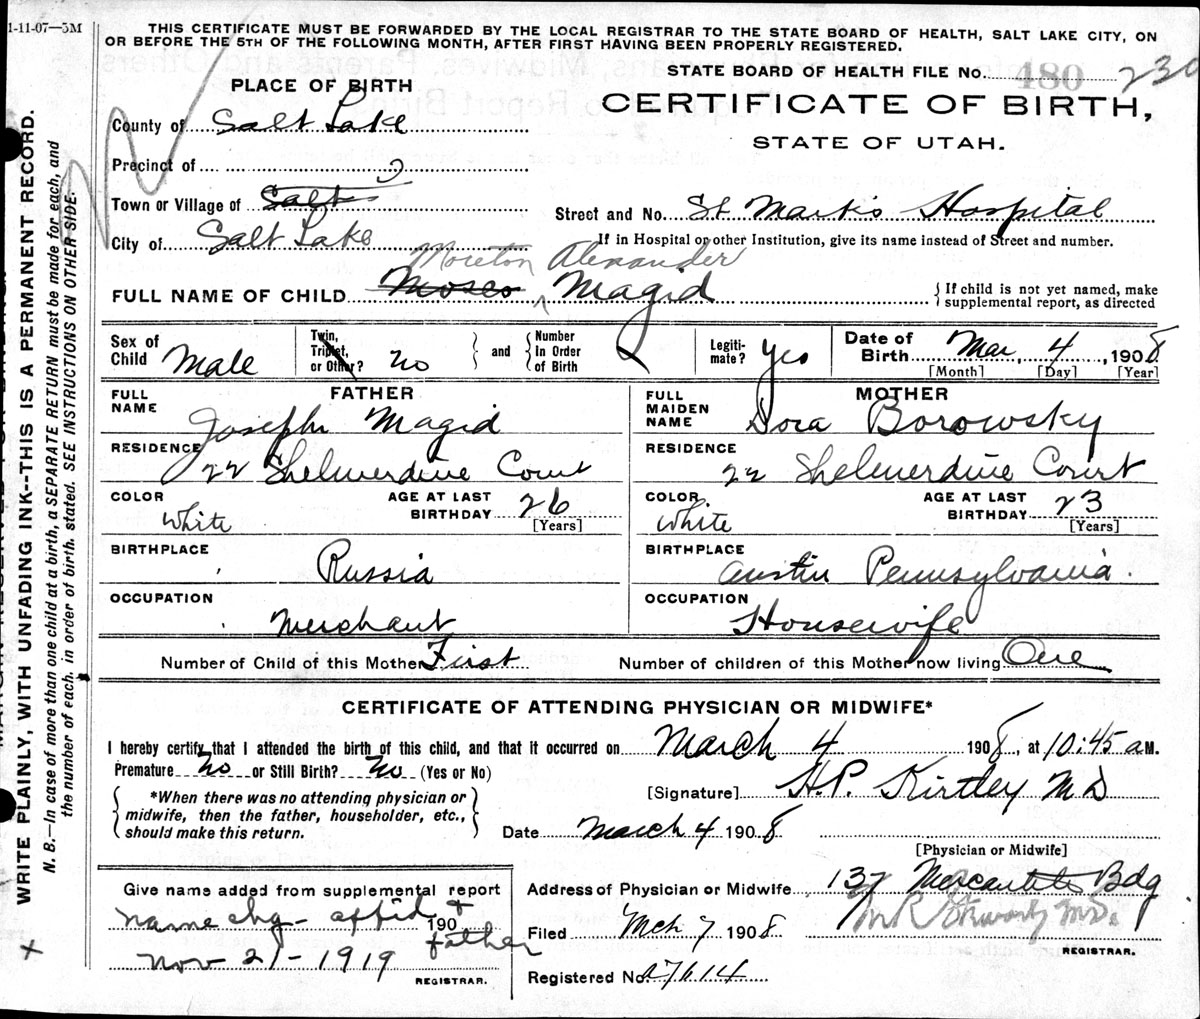 1-11-07—5M
THIS CERTIFICATE MUST BE FORWARDED BY THE LOCAL REGISTRAR TO THE STATE BOARD OF HEALTH, SALT LAKE CITY, ON
OR BEFORE THE 5TH OF THE FOLLOWING MONTH, AFTER FIRST HAVING BEEN PROPERLY REGISTERED.
STATE BOARD OF HEALTH FILE No. 480 230
PLACE OF BIRTH
CERTIFICATE OF BIRTH,
STATE OF UTAH.
County of Salt Lake
Precinct of 2
Town or Village of Salt
Street and No. St Mark's Hospital
City of Salt Lake
If in Hospital or other Institution, give its name instead of Street and number.
Moreton Alexander
FULL NAME OF CHILD Mosco Magid
If child is not yet named, make
supplemental report, as directed
Sex of Child Male
Twin, Triplet, or Other? No
and
Number in Order of Birth
Legitimate? Yes
Date of Birth Mar. 4, 1908
[Month] [Day] [Year]
FATHER
FULL NAME Joseph Magid
RESIDENCE 22 Shelmerdine Court
COLOR White
AGE AT LAST BIRTHDAY 26
[Years]
BIRTHPLACE Russia
OCCUPATION Merchant
MOTHER
FULL MAIDEN NAME Dora Borowsky
RESIDENCE 22 Shelmerdine Court
COLOR White
AGE AT LAST BIRTHDAY 23
[Years]
BIRTHPLACE Austin Pennsylvania.
OCCUPATION Housewife
Number of Child of this Mother First Number of children of this Mother now living One
CERTIFICATE OF ATTENDING PHYSICIAN OR MIDWIFE*
I hereby certify that I attended the birth of this child, and that it occurred on March 4 1908, at 10:45 A.M.
Premature No or Still Birth? No (Yes or No)
[Signature] H.P. Kirtley M D
*When there was no attending physician or
midwife, then the father, householder, etc.,
should make this return.
Date March 4 1908
[Physician or Midwife]
Give name added from supplemental report
name chg - affid of 190
father
Nov 21-1919
REGISTRAR.
Address of Physician or Midwife 137 Mercantile Bdg
Filed Mch 7 1908
M R Stewart M.D.
REGISTRAR.
Registered No. 27614
WRITE PLAINLY, WITH UNFADING INK--THIS IS A PERMANENT RECORD.
N. B.—In case of more than one child at a birth, a SEPARATE RETURN must be made for each, and
the number of each, in order of birth, stated. SEE INSTRUCTIONS ON OTHER SIDE.